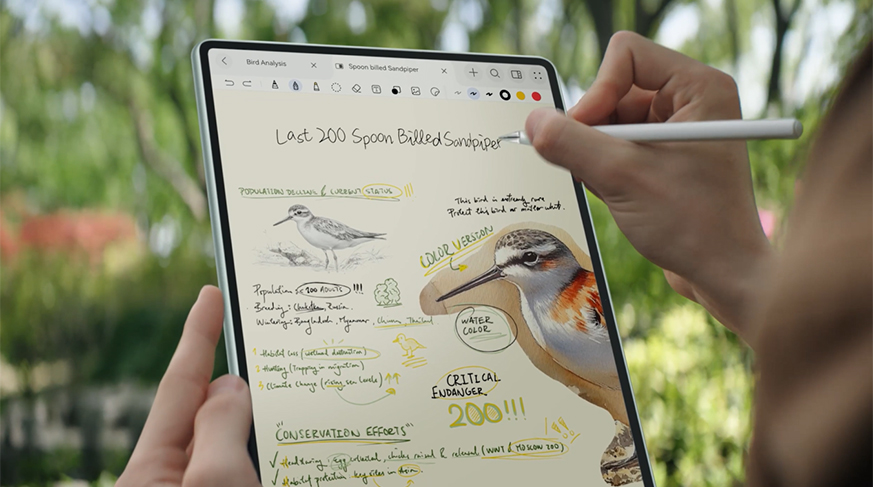 Bird Analysis
Spoon billed Sandpiper
Last 200 Spoon Billed Sandpiper
POPULATION DECLINE & CURRENT STATUS
This bird is extremely rare
Protect this bird
COLOR VERSION
Population: < 200 ADULTS !!!
Breeding: Chukotka, Russia.
Wintering: Bangladesh, Myanmar, China, Thailand
WATER
COLOR
1 Habitat Loss (wetland destruction)
2 Hunting (Trapping in migration)
3 Climate Change (rising sea levels)
CRITICAL
ENDANGER
200!!!
"CONSERVATION EFFORTS"
✓ Headstarting: egg collected, chicks raised & released (WWT & MOSCOW ZOO)
✓ Habitat protection key sites in Asia